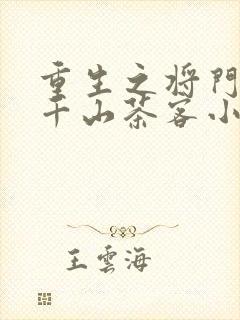 重生之将门
千山茶客小
王雲海